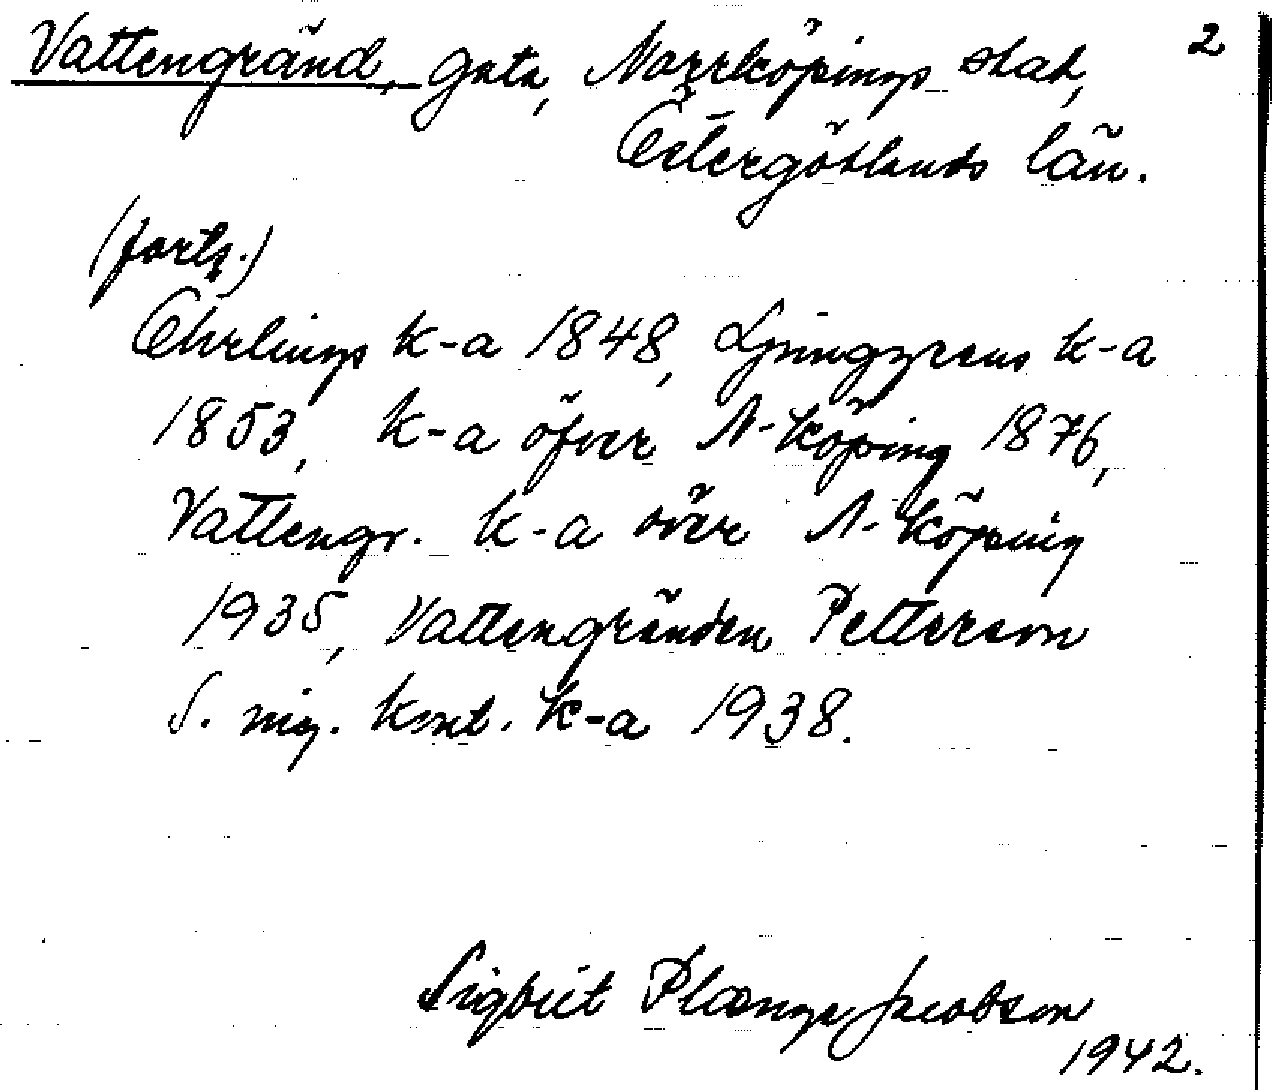 Vattengränd, gata, Norrköpings stad, 2
Östergötlands län.
(forts.)
Öhrlings k-a 1848, Ljunggrens k-a
1853, k-a öfver N-köping 1876,
Vattengr. k-a över N-köping
1935, Vattengränden Petterson
S. nig. kort. k-a 1938.
Sigbrit Plænge Jacobson
1942.